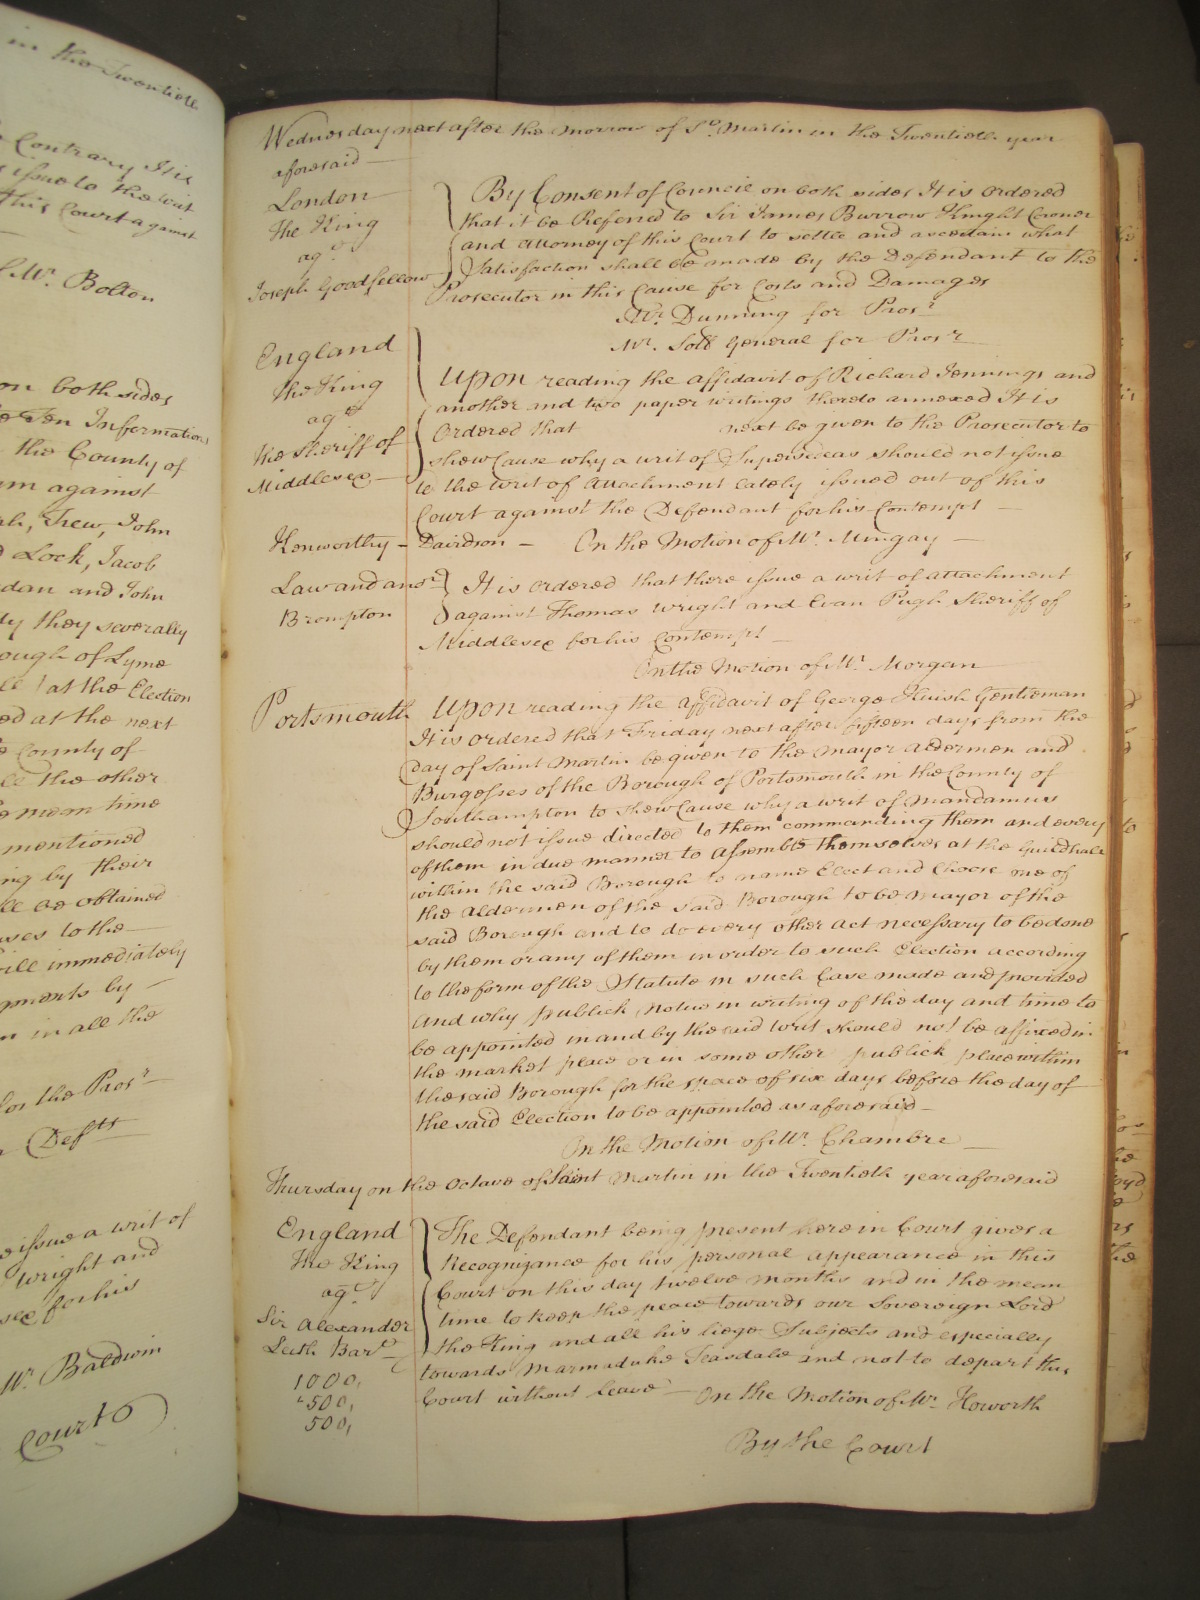 in the Twentieth
Contrary It is
issue to the writ
this Court against
Mr. Bolton
on both sides
Ten Informations
the County of
against
Trew, John
Lock, Jacob
dan and John
they severally
ough of Lyme
at the Election
ed at the next
County of
the other
mean time
mentioned
ing by their
be obtained
uses to the
will immediately
gments by
in all the
for the Prosr
Defts
issue a writ of
Wright and
sex for his
Mr. Baldwin
Court
Wednesday next after the morrow of St. Martin in the Twentieth year
aforesaid
London
The King
agt
Joseph Goodfellow
By Consent of Council on both sides It is Ordered
that it be Referred to Sir James Burrow Knight Coroner
and Attorney of this Court to settle and ascertain what
Satisfaction shall be made by the Defendant to the
Prosecutor in this Cause for Costs and Damages
Mr. Dunning for Prosr
Mr. Soll General for Prosr
England
The King
agt
the Sheriff of
Middlesex
Upon reading the affidavit of Richard Jennings and
another and two paper writings thereto annexed It is
Ordered that next be given to the Prosecutor to
shew Cause why a writ of Supersedeas should not issue
to the writ of Attachment lately issued out of this
Court against the Defendant for his Contempt
Kenworthy - Davidson - On the Motion of Mr. Mingay
Law and anor
Brompton
It is ordered that there issue a writ of attachment
against Thomas Wright and Evan Pugh Sheriff of
Middlesex for his Contempt
On the Motion of Mr. Morgan
Portsmouth Upon reading the affidavit of George Huish Gentleman
It is ordered that Friday next after fifteen days from the
day of Saint Martin be given to the Mayor Aldermen and
Burgesses of the Borough of Portsmouth in the County of
Southampton to shew Cause why a writ of Mandamus
should not issue directed to them commanding them and every
of them in due manner to Assemble themselves at the Guildhall
within the said Borough to name Elect and Choose one of
the Aldermen of the said Borough to be Mayor of the
said Borough and to do every other Act necessary to be done
by them or any of them in order to such Election according
to the form of the Statute in such Case made and provided
And why publick notice in writing of the day and time to
be appointed in and by the said writ should not be affixed in
the market place or in some other publick place within
the said Borough for the space of six days before the day of
the said Election to be appointed as aforesaid
On the Motion of Mr. Chambre
Thursday on the Octave of Saint Martin in the Twentieth year aforesaid
England
The King
agt
Sir Alexander
Leith Bart
1000,
500,
500,
The Defendant being present here in Court gives a
Recognizance for his personal appearance in this
Court on this day twelve months and in the mean
time to keep the peace towards our Sovereign Lord
the King and all his liege Subjects and especially
towards Marmaduke Teasdale and not to depart this
Court without leave - On the Motion of Mr. Howorth
By the Court